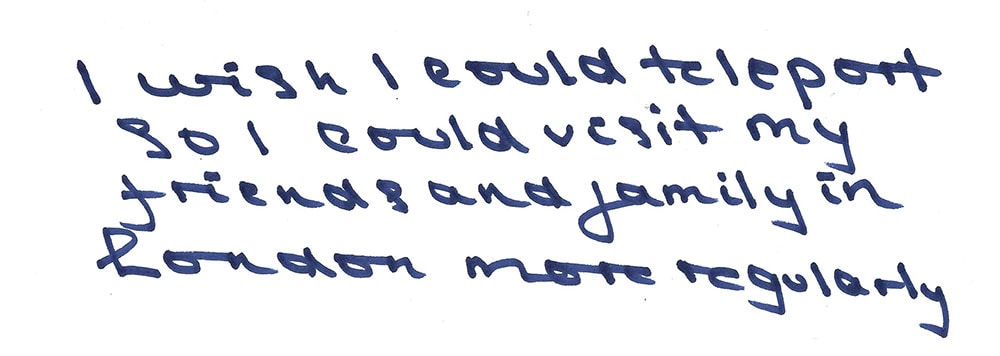 I wish I could teleport
so I could visit my
friends and family in
London more regularly